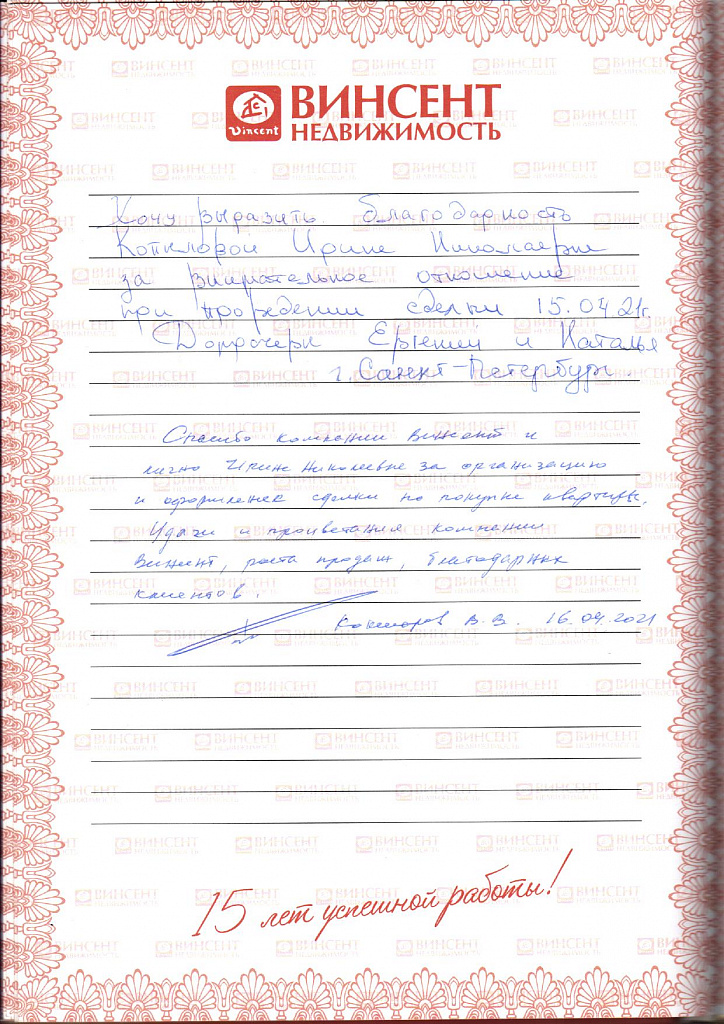 Vincent
ВИНСЕНТ
НЕДВИЖИМОСТЬ
Хочу выразить благодарность
Ирине Николаевне
за внимательное отношение
при проведении сделки 15.04.21г.
Евгений и Наталья
г. Санкт-Петербург.
Спасибо компании Винсент и
лично Ирине Николаевне за организацию
и оформление сделки по покупке квартиры.
Удачи и процветания компании
Винсент, роста продаж, благодарных
клиентов.
В.В. 16.04.2021
15 лет успешной работы!